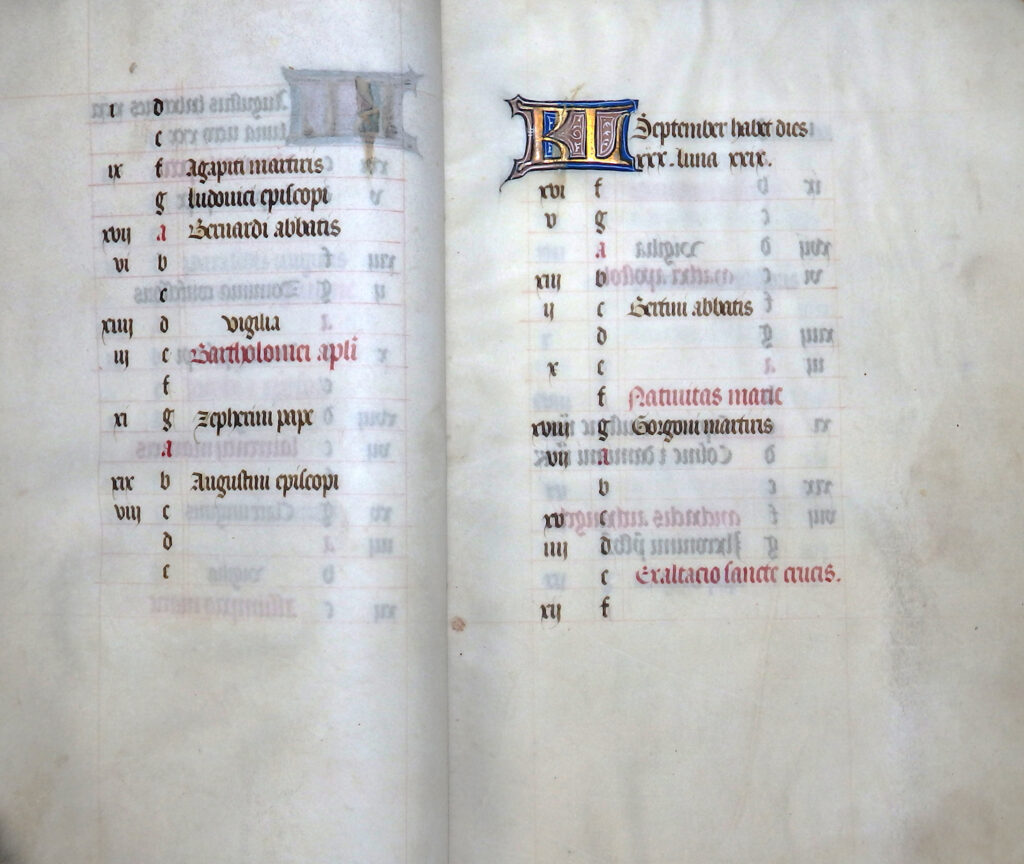 i d
e
ix f Agapiti martiris
g ludouici episcopi
xvii a Bernardi abbatis
vi b
c
xiiii d vigilia
iii e Bartholomei apli
f
xi g Zepherini pape
a
xix b Augustini episcopi
viii c
d
e
KL September habet dies
xxx. luna xxix.
xvi f
v g
a
xiii b
ii c Bertini abbatis
d
x e
f Natiuitas marie
xviii g Gorgonii martiris
vii a
b
xv c
iiii d
e Exaltacio sancte crucis.
xii f